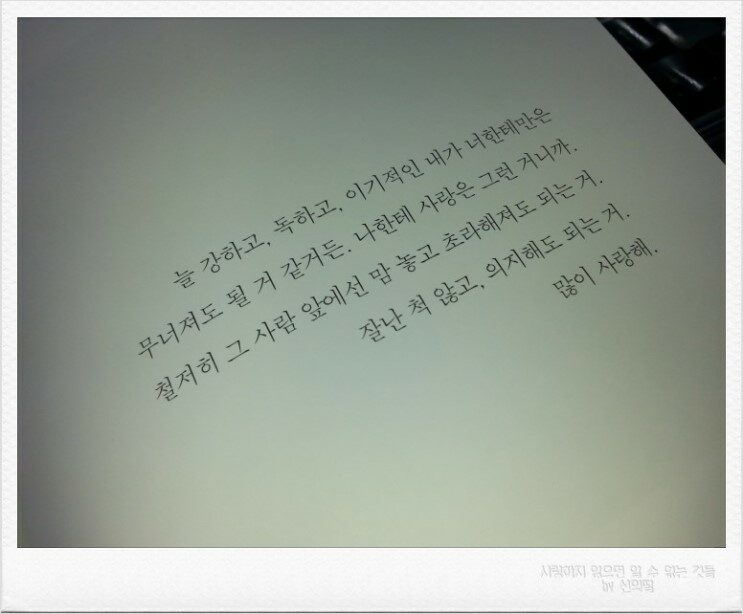 늘 강하고, 독하고, 이기적인 내가 너한테만은
무너져도 될 거 같거든. 나한테 사랑은 그런 거니까.
철저히 그 사람 앞에선 맘 놓고 초라해져도 되는 거.
잘난 척 않고, 의지해도 되는 거.
많이 사랑해.
사랑하지 않으면 알 수 없는 것들
by 신의딸